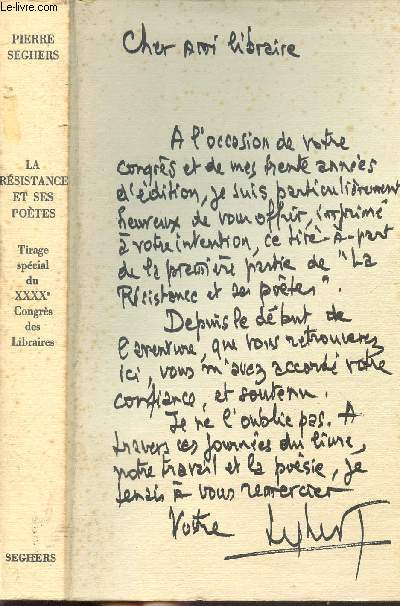 Le-livre.com
PIERRE
SEGHERS
LA
RÉSISTANCE
ET SES
POÈTES
Tirage
spécial
du
XXXXe
Congrès
des
Libraires
SEGHERS
Cher ami libraire
A l'occasion de votre
congrès et de mes trente années
d'édition, je suis particulièrement
heureux de vous offrir, imprimé
à votre intention, ce tiré-à-part
de la première partie de "La
Résistance et ses poètes".
Depuis le début de
l'aventure, que vous retrouverez
ici, vous m'avez accordé votre
confiance, et soutenu.
Je ne l'oublie pas. A
travers ces journées du livre,
notre travail et la poésie, je
tenais à vous remercier
Votre Seghers